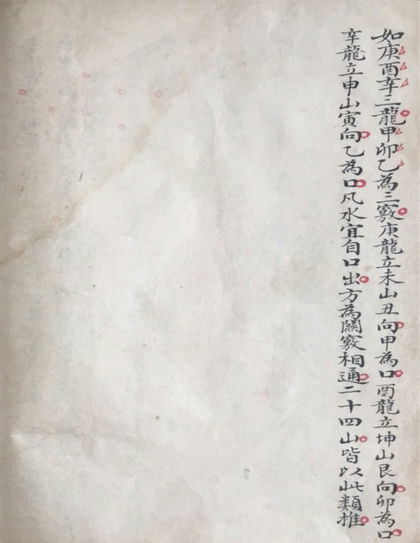 如庚酉辛三龍甲卯乙為三竅庚龍立未山丑向甲為口酉龍立坤山艮向卯為口
辛龍立申山寅向乙為口凡水宜自口出方為關竅相通二十四山皆以此類推